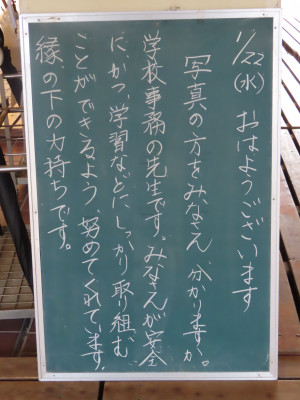 1/22(水) おはようございます
写真の方をみなさん、分かりますか。
学校事務の先生です。みなさんが安全
に、かつ、学習などにしっかり取り組む
ことができるよう、努めてくれています。
縁の下の力持ちです。